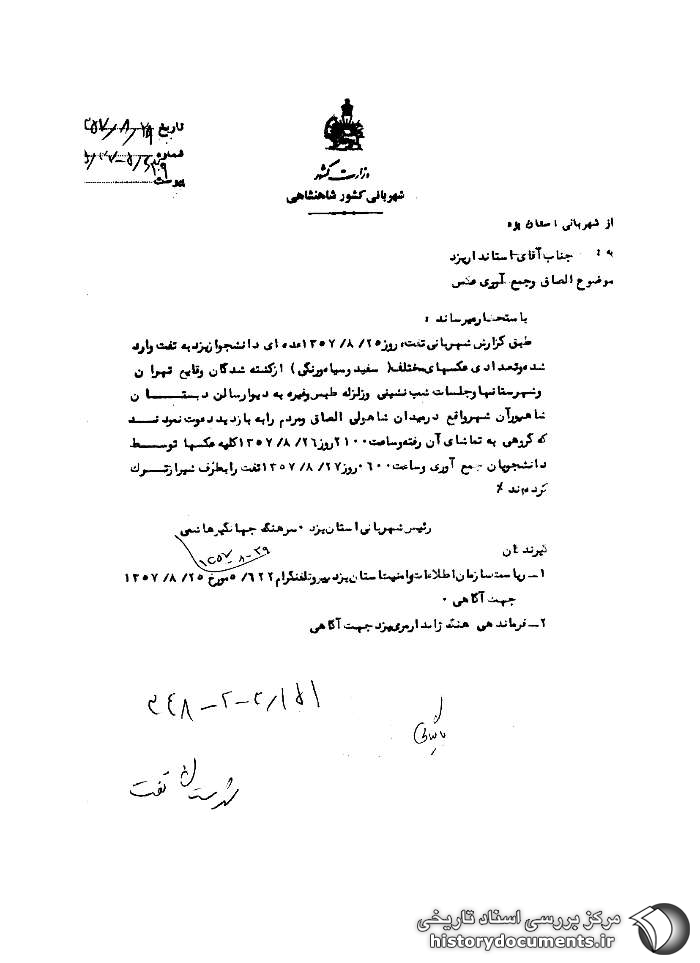 تاریخ ۵۷/۸/۲۹
شماره
پیوست
وزارت کشور
شهربانی کشور شاهنشاهی
از شهربانی استان یزد
به : جناب آقای استاندار یزد
موضوع الصاق و جمع آوری عکس
باستحضار میرساند :
طبق گزارش شهربانی تفت روز ۱۳۵۷/۸/۲۵ عده ای دانشجو از یزد به تفت وارد
شده و تعدادی عکسهای مختلف ( سفید و سیاه و رنگی ) از کشته شدگان وقایع تهران و
شهرستانها و جلسات شب نشینی و زلزله طبس و غیره به دیوار سالن دبستان
شاهپور آن شهر واقع در میدان شاه ولی الصاق و مردم را به بازدید دعوت نمودند
که گروهی به تماشای آن رفته و ساعت ۲۱۰۰ روز ۱۳۵۷/۸/۲۶ کلیه عکسها توسط
دانشجویان جمع آوری و ساعت ۰۶۰۰ روز ۱۳۵۷/۸/۲۷ تفت را بطرف شیراز ترک
کرده‌اند ٪
رئیس شهربانی استان یزد . سرهنگ جهانگیر هاشمی
۱۳۵۷-۸-۲۹
گیرندگان
۱- ریاست سازمان اطلاعات و امنیت استان یزد پیرو تلفنگرام ۵/۶۲۲ مورخ ۱۳۵۷/۸/۲۵
جهت آگاهی .
۲- فرماندهی هنگ ژاندارمری یزد جهت آگاهی
بایگانی
شهرستان تفت
مرکز بررسی اسناد تاریخی
historydocuments.ir